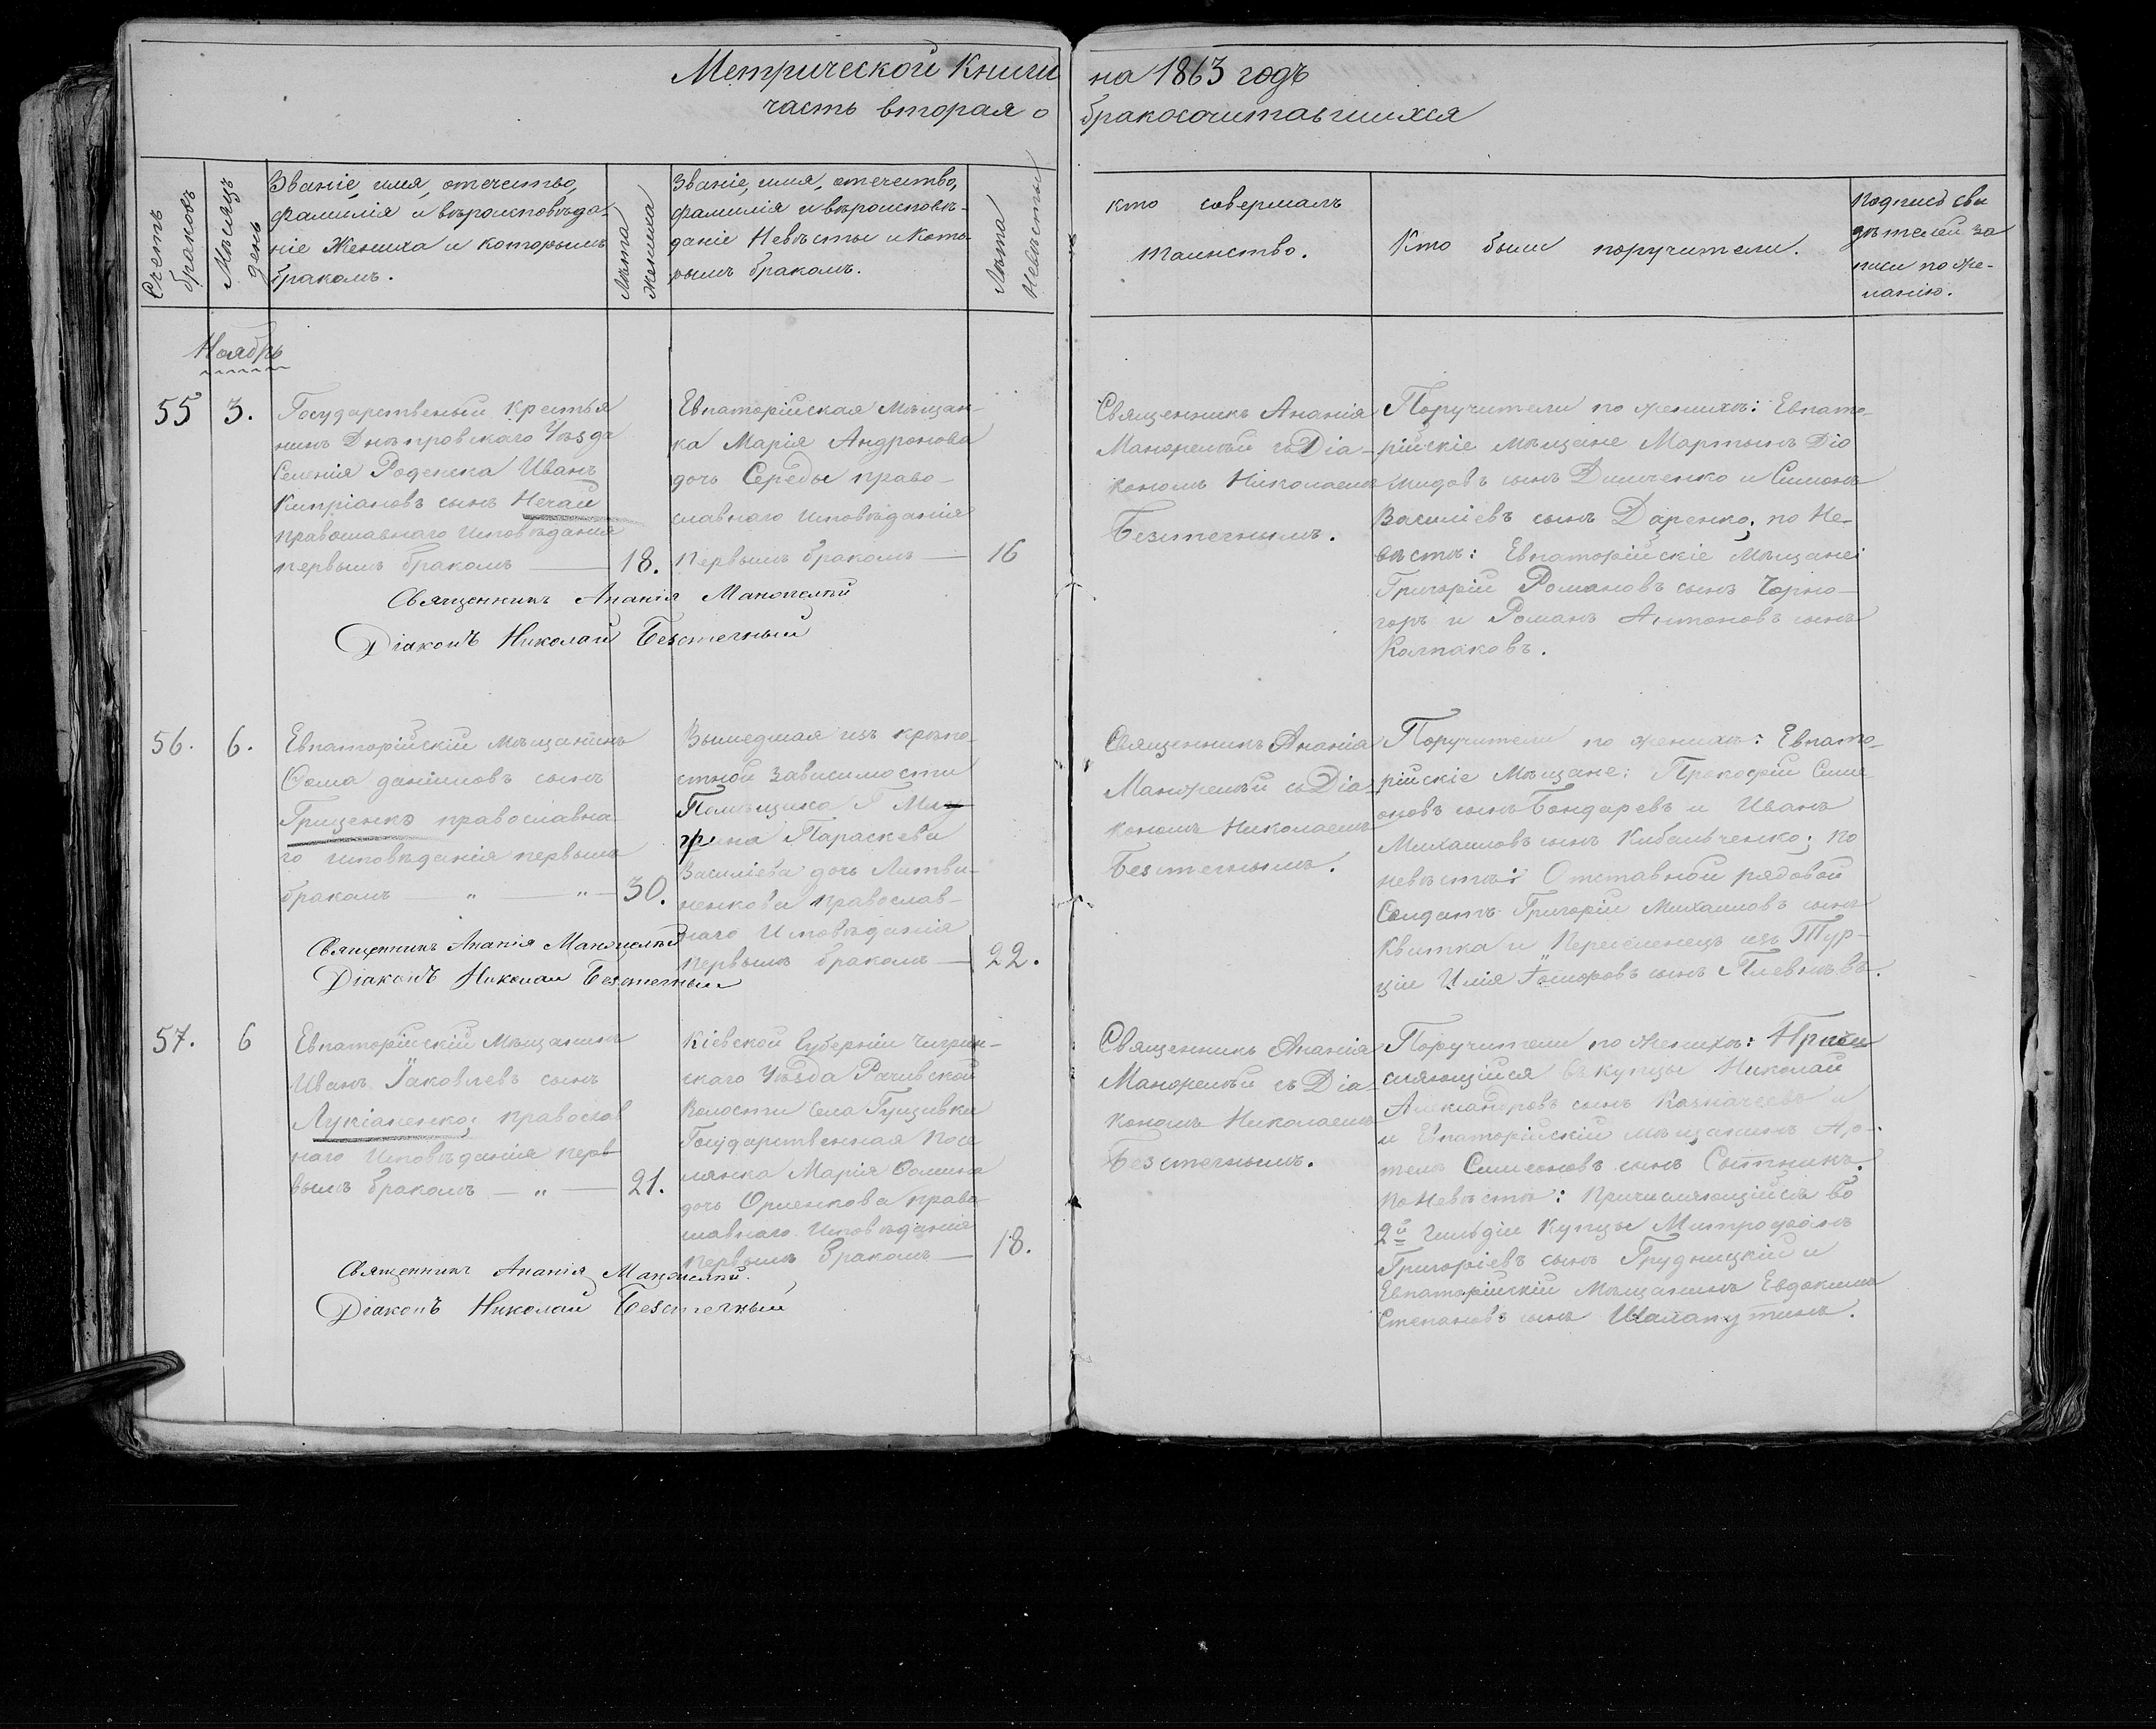 Метрической Книги на 1863 годъ
часть вторая о бракосочитавшихся
Счетъ
браковъ
Мѣсяцъ
день
Званіе, имя, отечество,
фамилія и вѣроисповѣда-
ніе Жениха и которымъ
бракомъ.
Лѣта
жениха
Званіе, имя, отечество,
фамилія и вѣроисповѣ-
даніе Невѣсты и кото-
рымъ бракомъ.
Лѣта
Невѣсты
кто совершалъ
таинство.
Кто были поручители.
Подпись сви
дѣтелей за
писи по же-
ланію.
Ноябрь
55
3.
Государственый крестья
нинъ Днѣпровскаго Уѣзда
Селенія Роденска Иванъ
Кипріановъ сынъ Нечай
православнаго исповѣданія
первымъ бракомъ
18.
Евпаторійская Мѣщан-
ка Марія Андронова
дочь Середы право-
славнаго исповѣданія
первымъ бракомъ
16
Священникъ Ананія
съ Діа-
кономъ Николаемъ
Безстечнымъ.
Поручители по женихѣ: Евпато-
рійскіе мѣщане Мартынъ Діо
мидовъ сынъ Димченко и Симонъ
Василіевъ сынъ Даренко, по Не-
вѣстѣ: Евпаторійскіе Мѣщане
Григорій Романовъ сынъ Чорно-
горъ и Романъ Антоновъ сынъ
Колпаковъ.
Священникъ Ананія
Діаконъ Николай Безстечный
56.
6.
Евпаторійскій мѣщанинъ
Ѳома даніиловъ сынъ
Грищенко православна
го исповѣданія первымъ
бракомъ — " — " —
30.
Вышедшая изъ крѣпо-
стной зависимости
Помѣщика Г
Параскева
Василіева дочь Литви-
ненкова православ-
наго Исповѣданія
первымъ бракомъ —
22.
Священникъ Ананія
съ Діа-
кономъ Николаемъ
Безстечнымъ.
Поручители по женихѣ: Евпато-
рійскіе Мѣщане: Прокофій Симе
оновъ сынъ Бондаревъ и Иванъ
Михаиловъ сынъ Кибальченко; по
невѣстѣ: Отставной рядовой
Солдатъ Григорій Михаиловъ сынъ
Квитка и Переселенецъ изъ Тур-
ціи Илія сынъ
Священникъ Ананія
Діаконъ Николай Безстечный
57.
6
Евпаторійскій Мѣщанинъ
Иванъ Іаковлевъ сынъ
Лукіаненко; православ
наго Исповѣданія пер-
вымъ бракомъ — " —
21.
Кіевской Губерніи Чигрин-
скаго Уѣзда
Волости села
Государственная Посе
лянка Марія Ѳомина
дочь Орленкова право
славнаго Исповѣданія
первымъ бракомъ —
18.
Священникъ Ананія
съ Діа-
кономъ Николаемъ
Безстечнымъ.
Поручители по женихѣ: Причи
сляющійся въ купцы Николай
Александровъ сынъ Казначеевъ и
и Евпаторійскій мѣщанинъ Ар-
темъ Симеоновъ сынъ Сытникъ.
По Невѣстѣ: Причисляющійся во
2й Гильдіи Купцы Митрофанъ
Григоріевъ сынъ Грудницкій и
Евпаторійскій Мѣщанинъ Евдокимъ
Степановъ сынъ Шалапутинъ.
Священникъ Ананія
Діаконъ Николай Безстечный